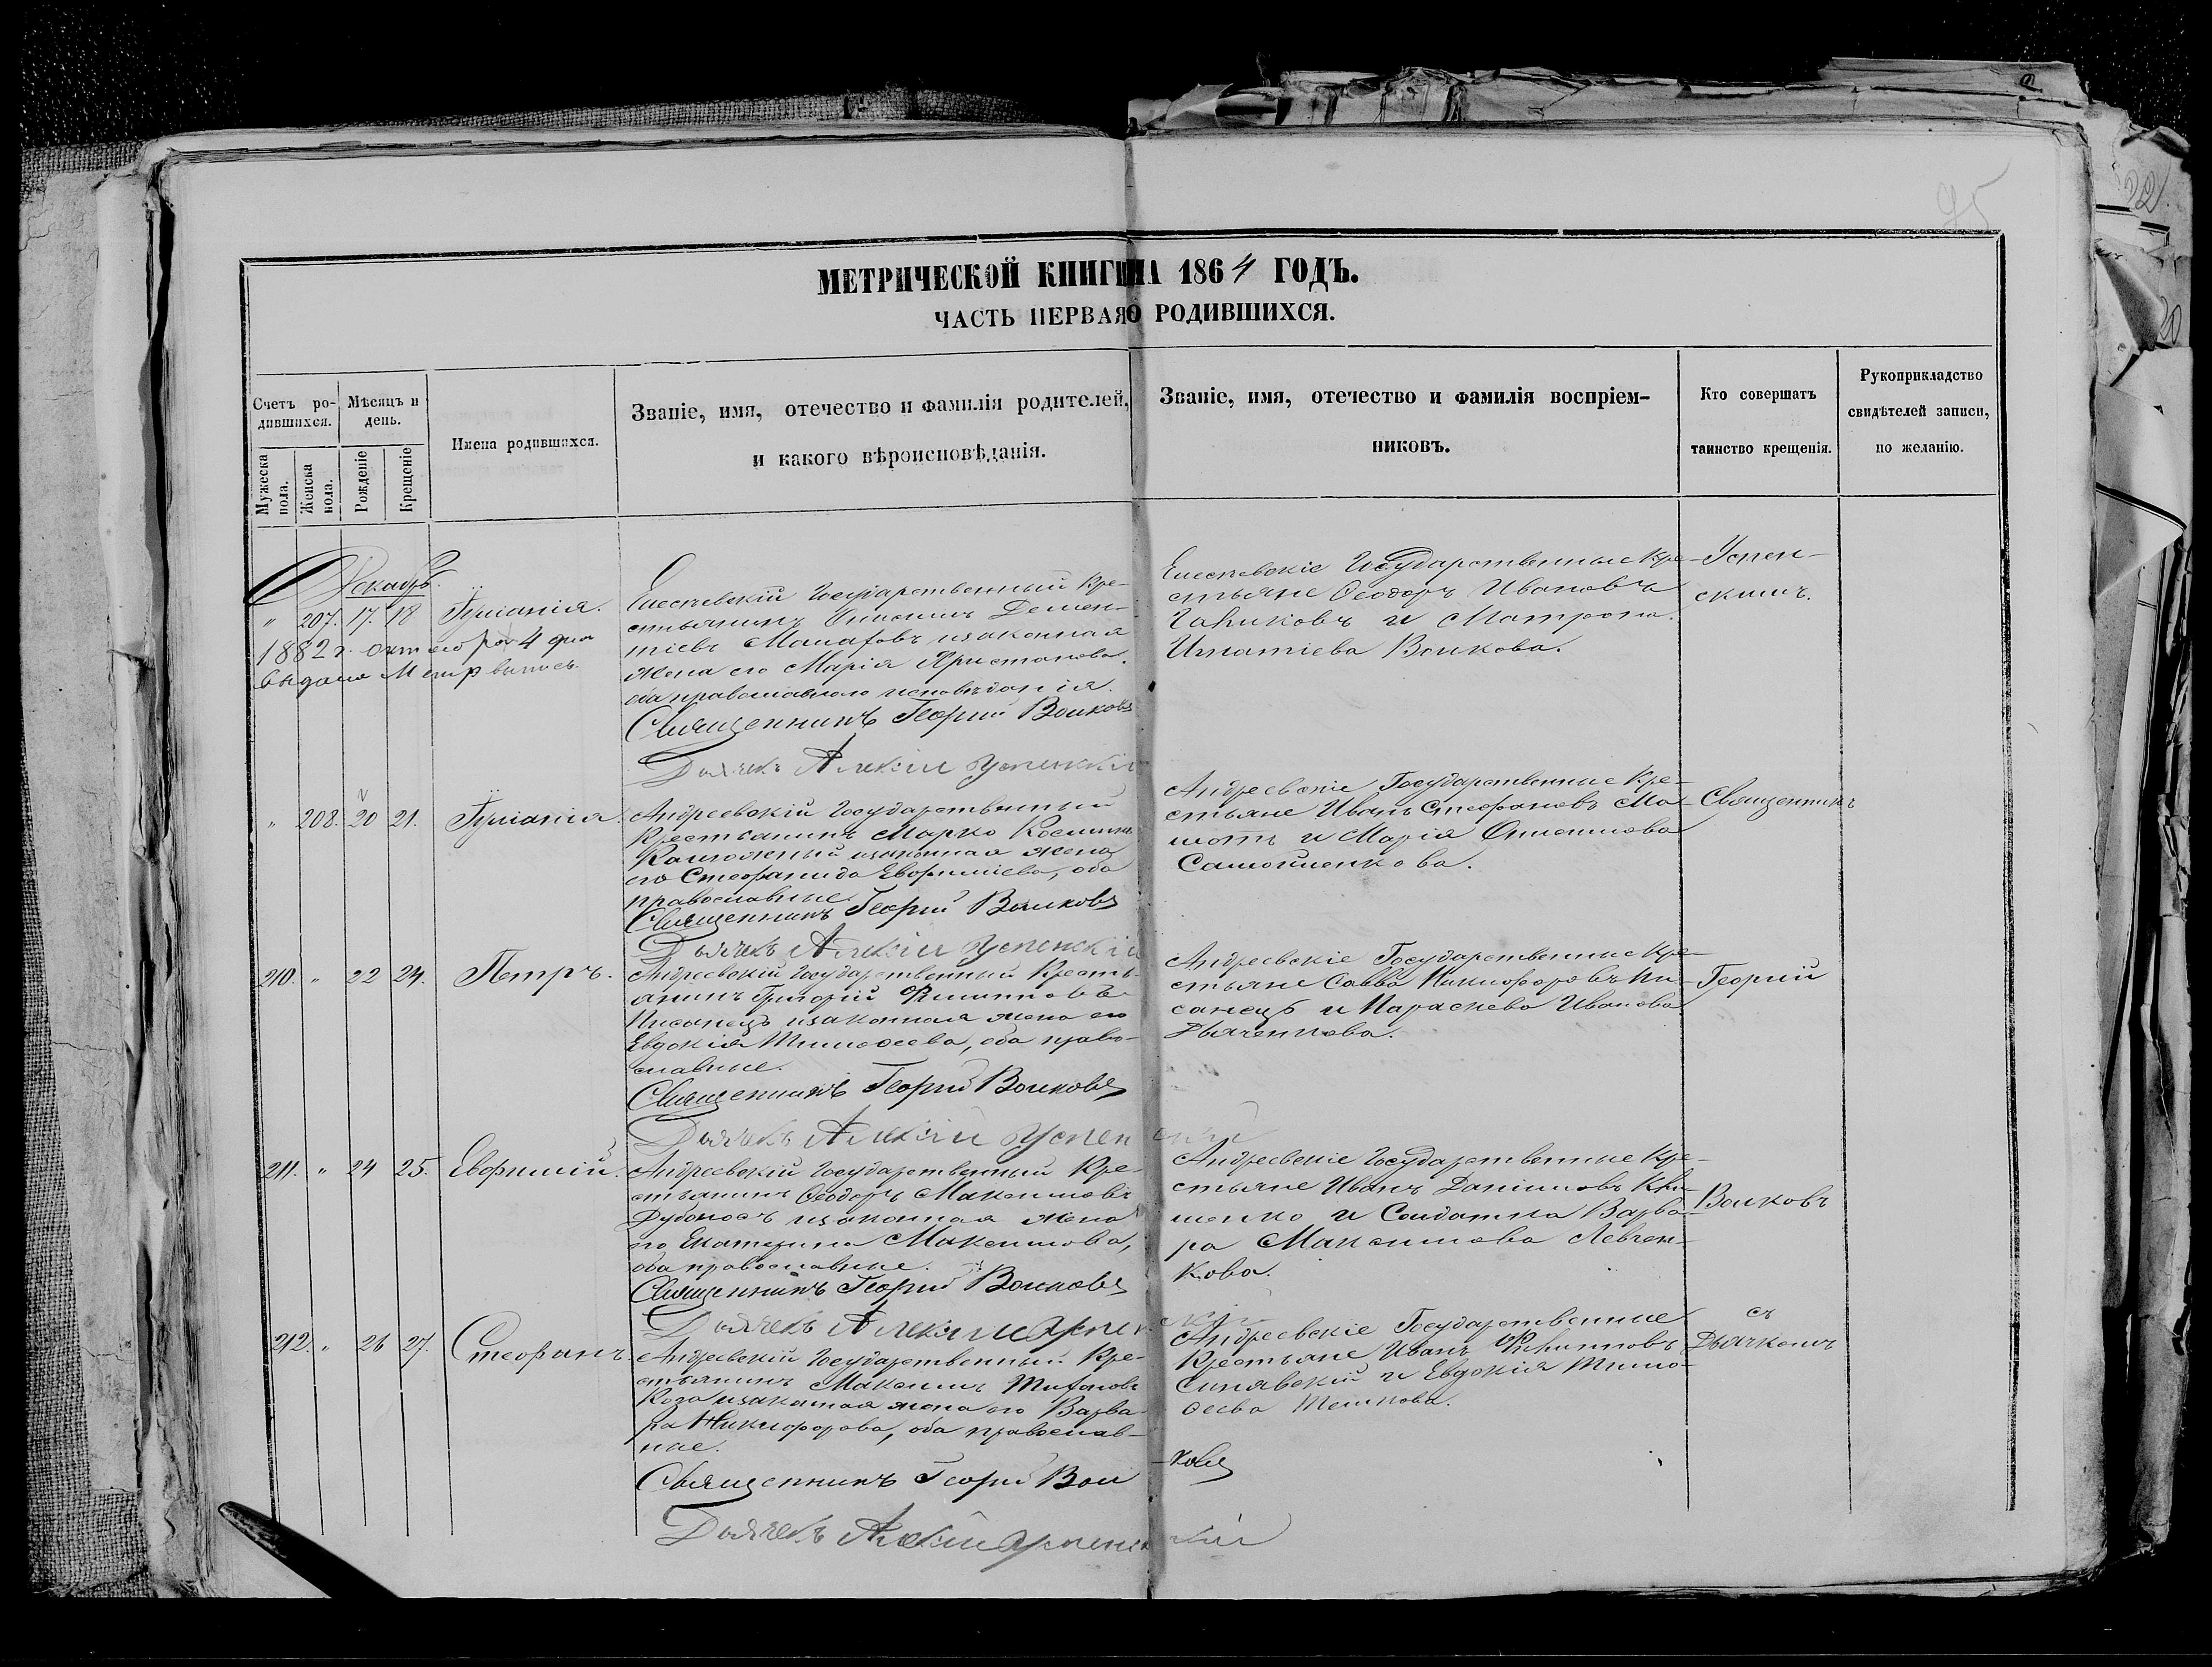 95
МЕТРИЧЕСКОЙ КНИГИ НА 1864 ГОДЪ.
ЧАСТЬ ПЕРВАЯ О РОДИВШИХСЯ.
Счетъ ро-
дившихся.
Мужеска
пола.
Женска
пола.
Мѣсяцъ и
день.
Рожденіе
Крещеніе
Имена родившихся.
Званіе, имя, отечество и фамилія родителей,
и какого вѣроисповѣданія.
Званіе, имя, отечество и фамилія воспріем-
никовъ.
Кто совершатъ
таинство крещенія.
Рукоприкладство
свидѣтелей записи,
по желанію.
Декабр.
" 207. 17. 18 Іуліанія.
1882 г. октобра 4 дня
выдана Метр выпись
Государственный Кре-
стьянинъ Демен-
тіевъ законная
жена его Марія
оба православнаго исповѣданія.
Священникъ Георгій Волковъ
Дьячекъ Алексій Успенскій
Государственные Кре-
стьяне Ѳеодоръ Ивановъ
и Матрона
Игнатіева Волкова.
Успен-
скимъ.
" 208. 20 21. Іуліанія.
Андреевскій Государственный
Крестьянинъ Марко Косминъ
законная жена
его Стефанида Евфиміева, оба
православные.
Священникъ Георгій Волковъ
Дьячекъ Алексій Успенскій
Андреевскіе Государственные Кре-
стьяне Иванъ Стефановъ
и Марія
Самойленкова.
Священникъ
210. " 22 24. Петръ.
Андреевскій Государственный Кресть-
янинъ Григорій Филипповъ
Писанецъ законная жена его
Евдокія Тимоѳеева, оба право-
славные.
Священникъ Георгій Волковъ
Дьячекъ Алексій Успенскій
Андреевскіе Государственные Кре-
стьяне Савва Никифоровъ Пи-
санецъ и Параскева Иванова
Дьяченкова.
Георгій
211. " 24 25. Евфимій.
Андреевскій Государственный Кре-
стьянинъ Ѳеодоръ Максимовъ
Дубоносъ законная жена
его Екатерина Максимова,
оба православные.
Священникъ Георгій Волковъ
Дьячекъ Алексій Успенскій
Андреевскіе Государственные Кре-
стьяне Иванъ Даніиловъ Кли-
менко и Солдатка Варва-
ра Максимова Левчен-
кова.
Волковъ
212. " 26 27. Стефанъ.
Андреевскій Государственный Кре-
стьянинъ Максимъ Тихоновъ
Коза законная жена его Варва-
ра Никифорова, оба православ-
ные.
Священникъ Георгій Волковъ
Дьячекъ Алексій Успенскій
Андреевскіе Государственные
Крестьяне Иванъ Филипповъ
Синявскій и Евдокія Тимо-
ѳеева
съ
Дьячкомъ